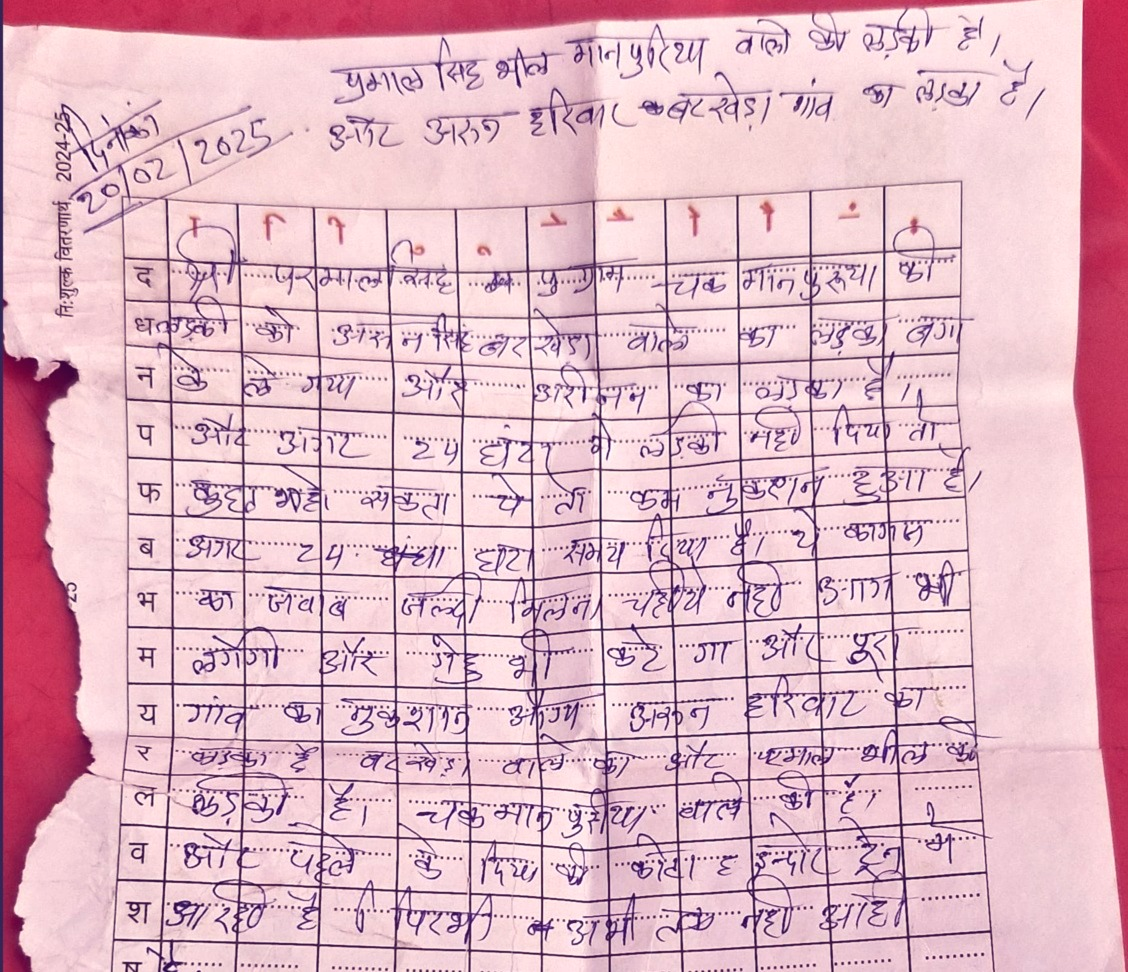 प्रमाल सिह भील मानपुरिया वाले की लड़की है।
और अरुन हरिवार बटखेड़ा गांव का लड़का है।
दिनांक
20/02/2025
नि:शुल्क वितरणार्थ, 2024-25
द श्री परमाल सिह ग्राम चक मानपुरूया की
ध लड़की को अरुन सिह बटखेड़ा वाले का लड़का बगा
न के ले गया और का लड़का है।
प और अगर 24 घंटा मे लड़की नही दिया तो
फ कुछ भी हो सकता ये तो कम नुकशान हुआ है।
ब अगर 24 घंटा समय दिया है। ये कागज
भ का जवाब जल्दी मिलना चहीये नही आग भी
म लगेगी और गेहु भी कटे गा और पूरा
य गांव का नुकशान अरुन हरिवार का
र लड़का है बटखेड़ा वाले का और परमाल भील की
ल लड़की है। चक मानपुरीया वाले की है।
व और पहले के दिया की कोटा इन्दोर ट्रेन मे
श आ रही है अभी तक नही आही
ष है